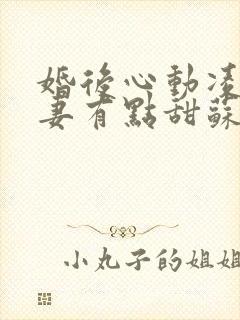 婚後心動凌
妻有點甜蘇
小丸子的姐姐